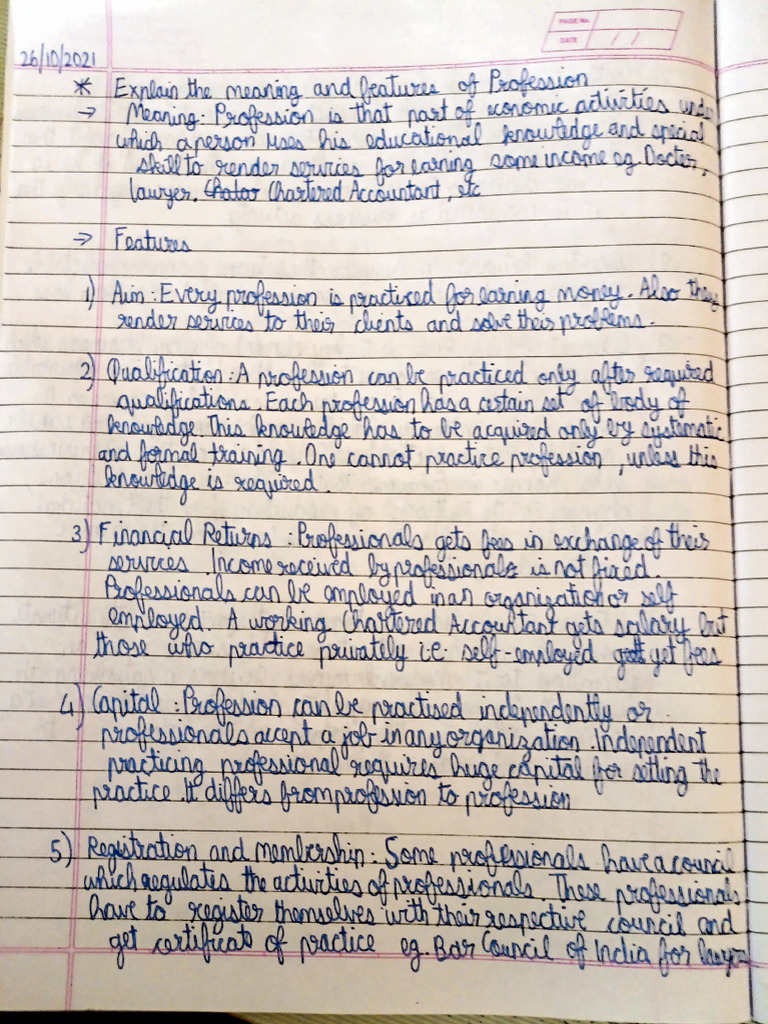 PAGE No.
DATE / /
26/10/2021
* Explain the meaning and features of Profession
→ Meaning: Profession is that part of economic activities under
which a person uses his educational knowledge and special
skill to render services for earning some income eg. Docter,
lawyer, Chatar Chartered Accountant, etc
→ Features
1) Aim : Every profession is practiced for earning money. Also they
render services to their clients and solve their problems.
2) Qualification : A profession can be practiced only after required
qualifications. Each profession has a certain set of body of
knowledge. This knowledge has to be acquired only by systematic
and formal training. One cannot practice profession, unless this
knowledge is required.
3) Financial Returns : Professionals gets fees in exchange of their
services. Income received by professionals is not fixed
Professionals can be employed in an organization or self
employed. A working Chartered Accountant gets salary but
those who practice privately i.e self-employed get fees
4) Capital : Profession can be practised independently or
professionals accept a job in any organization. Independent
practicing professional requires huge capital for setting the
practice. It differs from profession to profession
5) Registration and membership : Some professionals have a council
which regulates the activities of professionals. These professionals
have to register themselves with their respective council and
get certificate of practice eg. Bar Council of India for lawyer